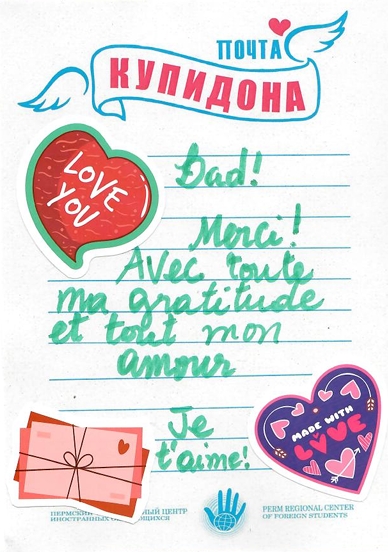 ПОЧТА
КУПИДОНА
LOVE
YOU
Dad!
Merci!
Avec toute
ma gratitude
et tout mon
amour
Je
t'aime!
MADE WITH
LOVE
ПЕРМСКИЙ
ИНОСТРАННЫХ
PERM REGIONAL CENTER
OF FOREIGN STUDENTS